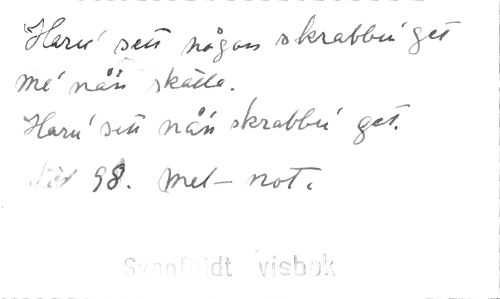 Haru' sett någon skrabbu' get
me' nåň skälla.
Haru' sett nåň skrabbu' get.
98. Mel- not.
Svanfeldt visbok